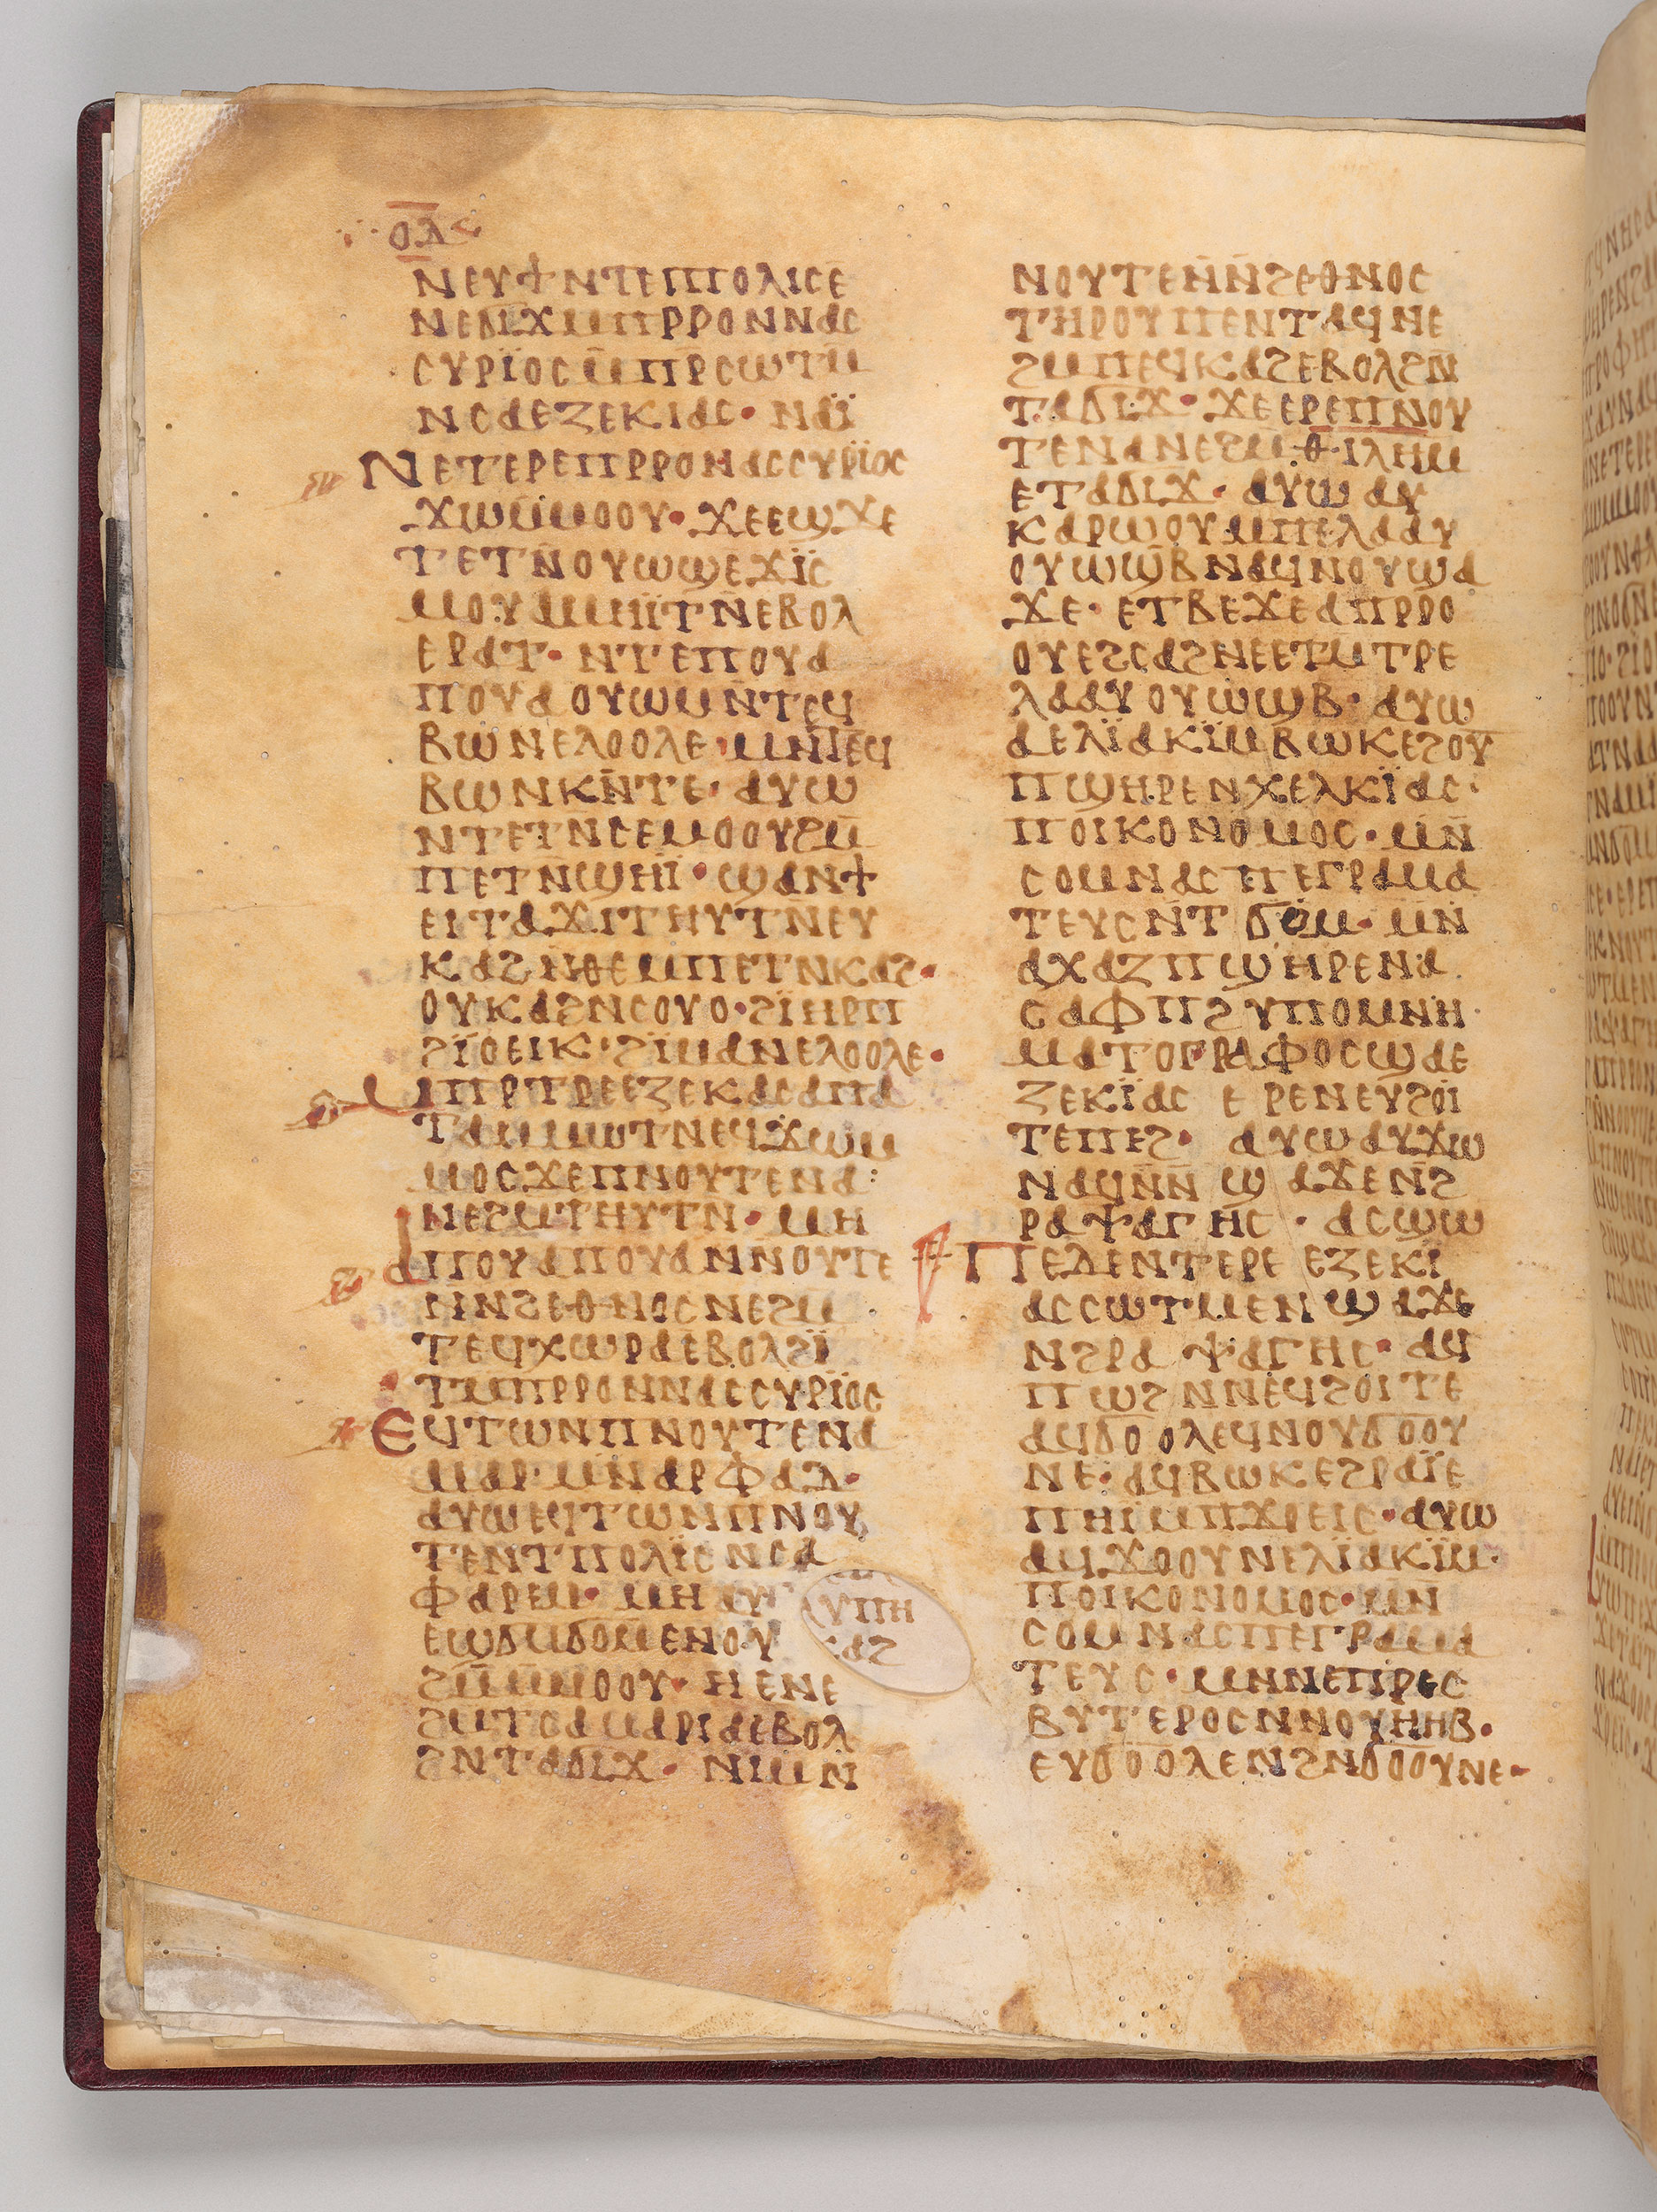 ⲟⲇ
ⲛⲉⲩϯⲛⲧⲉⲓⲡⲟⲗⲓⲥⲉ
ⲛⲉϭⲓϫⲙⲡⲣⲣⲟⲛⲛⲁⲥ
ⲥⲩⲣⲓ̈ⲟⲥⲙ̄ⲡⲣⲥⲱⲧⲙ̄
ⲛⲥⲁⲉⲍⲉⲕⲓⲁⲥ· ⲛⲁⲓ̈
ⲛⲉⲧⲉⲣⲉⲡⲣⲣⲟⲛⲁⲥⲥⲩⲣⲓ̈ⲟⲥ
ϫⲱⲙ̄ⲙⲟⲟⲩ· ϫⲉⲉϣϫⲉ
ⲧⲉⲧⲛ̄ⲟⲩⲱϣⲉϫⲓ̈ⲥ
ⲙⲟⲩⲁⲙⲏⲓ̈ⲧⲛ̄ⲉⲃⲟⲗ
ⲉⲣⲁⲧ· ⲛⲧⲉⲡⲟⲩⲁ
ⲡⲟⲩⲁ ⲟⲩⲱⲙⲛⲧⲉϥ
ⲃⲱⲛⲉⲗⲟⲟⲗⲉ·ⲙⲛⲧⲉϥ
ⲃⲱⲛⲕⲛ̄ⲧⲉ· ⲁⲩⲱ
ⲛⲧⲉⲧⲛⲥⲉⲙⲟⲟⲩϩⲙ̄
ⲡⲉⲧⲛ̄ϣⲏⲓ̈· ϣⲁⲛϯ
ⲉⲓⲧⲁϫⲓⲧⲏⲩⲧⲛ̄ⲉⲩ
ⲕⲁϩⲛ̄ⲑⲉⲙⲡⲉⲧⲛⲕⲁϩ·
ⲟⲩⲕⲁϩⲛⲥⲟⲩⲟ·ϩⲓ̈ⲏⲣⲡ
ϩⲓ̈ⲟⲉⲓⲕ·ϩⲓ̈ⲙⲁⲛⲉⲗⲟⲟⲗⲉ·
ⲙⲡⲣⲧⲣⲉⲉⲍⲉⲕⲁⲥⲁⲡⲁ
ⲧⲁⲙⲙⲱⲧⲛⲉϥϫⲱⲙ
ⲙⲟⲥϫⲉⲡⲛⲟⲩⲧⲉⲛⲁ:
ⲛⲉϩⲙⲧⲏⲩⲧⲛ· ⲙⲏ
ⲁⲡⲟⲩⲁⲡⲟⲩⲁⲛⲛⲟⲩⲧⲉ
ⲛⲛϩⲉⲑⲛⲟⲥⲛⲉϩⲙ
ⲧⲉϥⲭⲱⲣⲁⲉⲃⲟⲗϩⲓ̈
ⲧⲙⲡⲣⲣⲟⲛⲛⲁⲥⲥⲩⲣⲓ̈ⲟⲥ
ⲉϥⲧⲱⲛⲡⲛⲟⲩⲧⲉⲛⲁ
ⲙⲁⲣ·ⲙⲛⲁⲣⲫⲁⲗ·
ⲁⲩⲱⲉϥⲧⲱⲛⲡⲛⲟⲩ
ⲧⲉⲛⲧⲡⲟⲗⲓ̈ⲥ ⲛⲥⲁ
ⲫⲁⲣⲉⲙ· ⲙⲏ ⲁⲩ
ⲉϣϭⲙϭⲟⲙⲉⲛⲟⲩ
ϩⲙ̄ⲙⲙⲟⲟⲩ· ⲏ ⲉⲛⲉ
ϩⲙⲧⲥⲁⲙⲁⲣⲓⲁⲉⲃⲟⲗ
ϩⲛⲧⲁϭⲓϫ· ⲛⲓⲙⲛ
ⲛⲟⲩⲧⲉⲛ̄ⲛ̄ϩⲉⲑⲛⲟⲥ
ⲧⲏⲣⲟⲩⲡⲉⲛⲧⲁϥⲛⲉ
ϩⲙⲡⲉϥⲕⲁϩⲉⲃⲟⲗϩⲛ
ⲧⲁϭⲓϫ· ϫⲉⲉⲣⲉⲡⲛⲟⲩ
ⲧⲉⲛⲁⲛⲉϩⲙⲑⲓⲗⲏⲙ
ⲉⲧⲁϭⲓϫ· ⲁⲩⲱ ⲁⲩ
ⲕⲁⲣⲱⲟⲩⲙⲡⲉⲗⲁⲁⲩ
ⲟⲩⲱϣ̄ⲃⲛⲁϥⲛⲟⲩϣⲁ
ϫⲉ· ⲉⲧⲃⲉϫⲉⲁⲡⲣⲣⲟ
ⲟⲩⲉϩⲥⲁϩⲛⲉⲉⲧⲙⲧⲣⲉ
ⲗⲁⲁⲩ ⲟⲩⲱϣⲃ· ⲁⲩⲱ
ⲁⲉⲗⲓ̈ⲁⲕⲓ̈ⲙⲃⲱⲕⲉϩⲟⲩ
ⲡϣⲏⲣⲉⲛⲭⲉⲗⲕⲓ̈ⲁⲥ·
ⲡⲟⲓⲕⲟⲛⲟⲙⲟⲥ· ⲙⲛ̄
ⲥⲟⲙⲛⲁⲥ ⲡⲉⲅⲣⲁⲙⲁ
ⲧⲉⲩⲥⲛ̄ⲧ ϭⲟⲙ· ⲙⲛ̄
ⲁⲭⲁⲍ ⲡϣⲏⲣⲉⲛⲁ
ⲥⲁⲫⲡϩⲩⲡⲟⲙⲛⲏ·
ⲙⲁⲧⲟⲅⲣⲁⲫⲟⲥϣⲁⲉ
ⲍⲉⲕⲓ̈ⲁⲥ ⲉ ⲣⲉⲛⲉⲩϩⲟⲓ̈
ⲧⲉⲡⲉϩ· ⲁⲩⲱⲁⲩϫⲱ
ⲛⲁϥⲛ̄ⲛ̄ ϣ ⲁϫⲉⲛ̄ϩ
ⲣⲁⲯⲁⲅⲏⲥ · ⲁⲥϣⲱ
ⲡⲉⲇⲉⲛⲧⲉⲣⲉ ⲉⲍⲉⲕⲓ
ⲁⲥⲥⲱⲧⲙⲉⲛ ϣ ⲁϫⲉ
ⲛϩⲣⲁ ⲯⲁⲅⲏⲥ· ⲁϥ
ⲡⲱϩ ⲛⲛⲉϥϩⲟⲓⲧⲉ
ⲁϥϭⲟ ⲟⲗⲉϥⲛⲟⲩϭⲟⲟⲩ
ⲛⲉ· ⲁϥⲃⲱⲕ ⲉϩⲣⲁⲓ̈ⲉ
ⲡⲏⲓ̈ⲙⲡϫⲟⲉⲓⲥ·ⲁⲩⲱ
ⲁϥ ϫⲟⲟⲩⲛⲉⲗⲓ̈ⲁⲕⲓ̈ⲙ·
ⲡⲟⲓⲕⲟⲛⲟⲙⲟⲥ·ⲙⲛ
ⲥⲟⲙⲛⲁⲥⲡⲉⲅⲣⲁⲙⲁ
ⲧⲉⲩⲥ· ⲙⲛⲛⲉⲡⲣⲉⲥ
ⲃⲩⲧⲉⲣⲟⲥⲛⲛⲟⲩⲏⲏⲃ·
ⲉⲩϭⲟⲟⲗⲉⲛϩⲛϭⲟⲟⲩⲛⲉ·